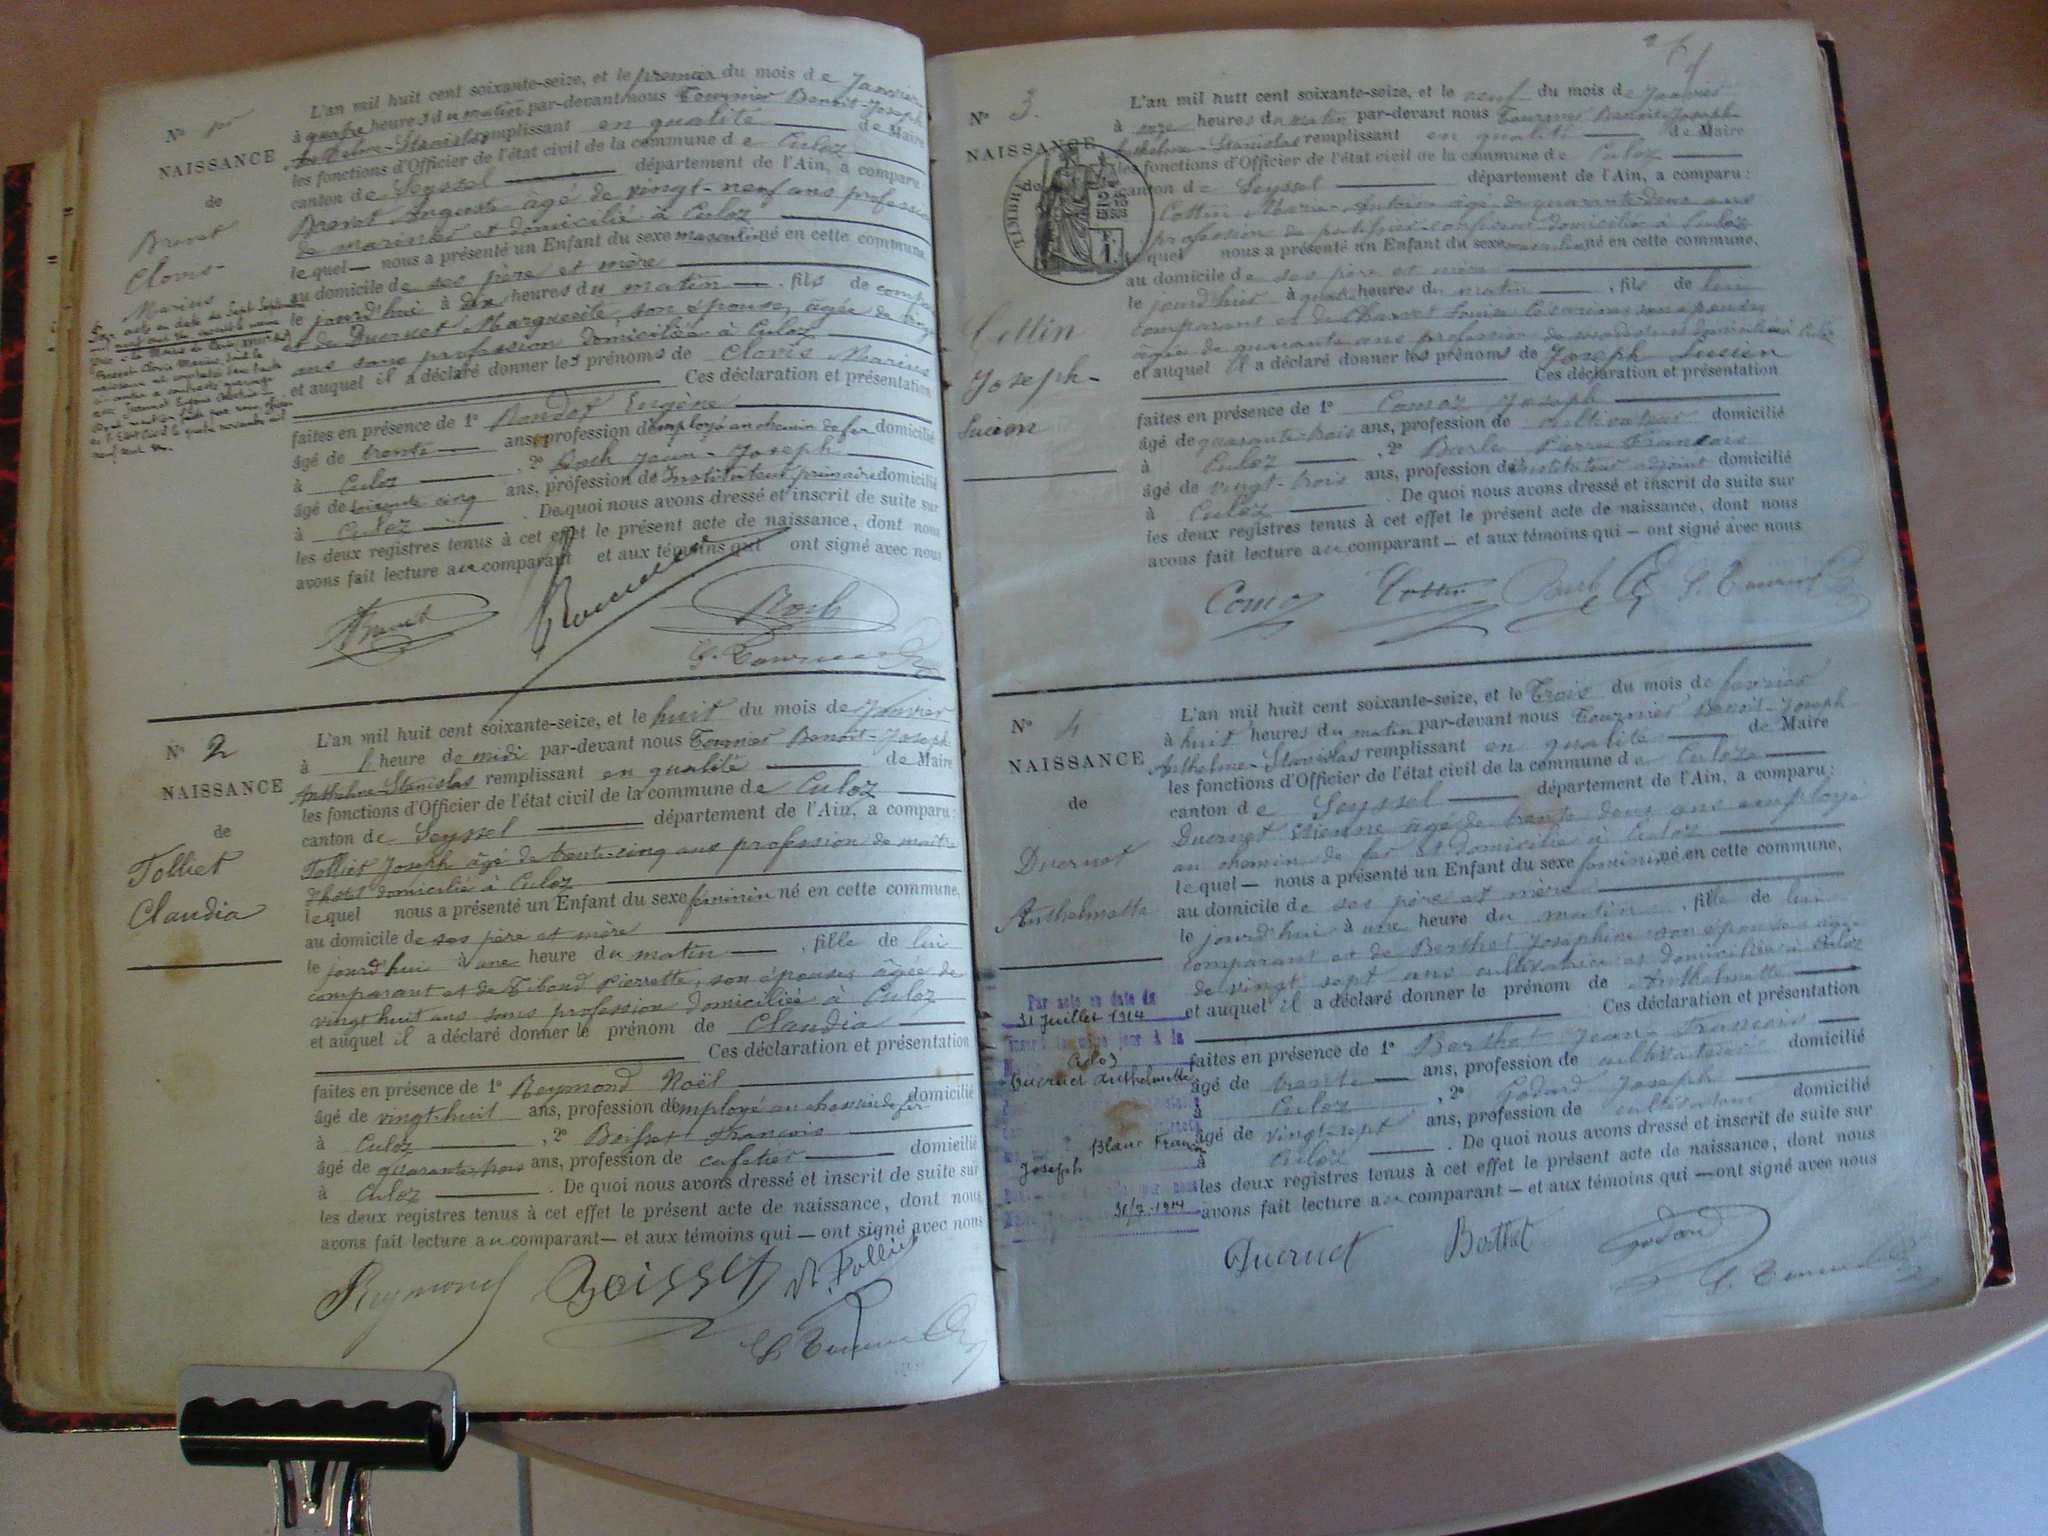 N° 1er
NAISSANCE
de
Brevet
Clovis-
Marius
L'an mil huit cent soixante-seize, et le premier du mois de Janvier
à quatre heures du matin par-devant nous Tournier Benoit-Joseph
Anthelme-Stanislas remplissant en qualité de Maire
les fonctions d'Officier de l'état civil de la commune de Culoz
canton de Seyssel département de l'Ain, a comparu
Brevet Auguste âgé de vingt-neuf ans profession
de marinier et domicilié à Culoz
lequel — nous a présenté un Enfant du sexe masculin né en cette commune,
au domicile de ses père et mère
le jourd'hui à dix heures du matin — , fils de comparant
et de Ducruet Marguerite, son épouse, âgée de vingt
ans sans profession domiciliée à Culoz
et auquel il a déclaré donner les prénoms de Clovis Marius
Ces déclaration et présentation
faites en présence de 1° Eugène
âgé de trente — ans, profession d'employé au chemin de fer domicilié
à Culoz , 2° Roch Jean-Joseph
âgé de soixante cinq ans, profession de Instituteur primaire domicilié
à Culoz . De quoi nous avons dressé et inscrit de suite sur
les deux registres tenus à cet effet le présent acte de naissance, dont nous
avons fait lecture au comparant et aux témoins qui ont signé avec nous
Brevet Roch
N° 2
NAISSANCE
de
Tolliet
Claudia
L'an mil huit cent soixante-seize, et le huit du mois de Janvier
à 1 heure de midi par-devant nous Tournier Benoit-Joseph
Anthelme-Stanislas remplissant en qualité de Maire
les fonctions d'Officier de l'état civil de la commune de Culoz
canton de Seyssel département de l'Ain, a comparu:
Tolliet Joseph âgé de trente-cinq ans profession de maître
d'hôtel domicilié à Culoz
lequel nous a présenté un Enfant du sexe féminin né en cette commune,
au domicile de ses père et mère
le jourd'hui à une heure du matin — , fille de lui
comparant et de Tiboud Pierrette, son épouse, âgée de
vingt huit ans sans profession domiciliée à Culoz
et auquel il a déclaré donner le prénom de Claudia
Ces déclaration et présentation
faites en présence de 1° Reymond Noël
âgé de vingt-huit ans, profession d'employé au chemin de fer domicilié
à Culoz , 2° Boisset François
âgé de quarante-trois ans, profession de cafetier domicilié
à Culoz . De quoi nous avons dressé et inscrit de suite sur
les deux registres tenus à cet effet le présent acte de naissance, dont nous
avons fait lecture au comparant — et aux témoins qui — ont signé avec nous
Reymond Boisset Tolliet
N° 3.
NAISSANCE
de
TIMBRE
Cottin
Joseph-
Lucien
L'an mil huit cent soixante-seize, et le neuf du mois de Janvier
à onze heures du matin par-devant nous Tournier Benoit-Joseph
Anthelme-Stanislas remplissant en qualité de Maire
les fonctions d'Officier de l'état civil de la commune de Culoz
canton de Seyssel département de l'Ain, a comparu:
Cottin Marie-Antoine âgé de quarante deux ans
profession de patissier-confiseur domicilié à Culoz
lequel nous a présenté un Enfant du sexe masculin né en cette commune,
au domicile de ses père et mère
le jourd'hui à quatre heures du matin — , fils de lui
comparant et de Charvet Louise son épouse
âgée de quarante ans profession de domiciliée à Culoz
et auquel il a déclaré donner les prénoms de Joseph Lucien
Ces déclaration et présentation
faites en présence de 1° Comoz Joseph
âgé de quarante-trois ans, profession de cultivateur domicilié
à Culoz , 2° Pierre François
âgé de vingt-trois ans, profession d'instituteur adjoint domicilié
à Culoz . De quoi nous avons dressé et inscrit de suite sur
les deux registres tenus à cet effet le présent acte de naissance, dont nous
avons fait lecture au comparant — et aux témoins qui — ont signé avec nous
Comoz Cottin
N° 4
NAISSANCE
de
Ducruet
Anthelmette
L'an mil huit cent soixante-seize, et le Trois du mois de février
à huit heures du matin par-devant nous Tournier Benoit-Joseph
Anthelme-Stanislas remplissant en qualité de Maire
les fonctions d'Officier de l'état civil de la commune de Culoz
canton de Seyssel département de l'Ain, a comparu:
Ducruet Etienne âgé de trente deux ans employé
au chemin de fer et domicilié à Culoz
lequel — nous a présenté un Enfant du sexe féminin né en cette commune,
au domicile de ses père et mère
le jourd'hui à une heure du matin , fille de lui
comparant et de Berthet Joséphine son épouse âgée
de vingt sept ans cultivatrice et domiciliée à Culoz
et auquel il a déclaré donner le prénom de Anthelmette
Ces déclaration et présentation
faites en présence de 1° Berthet Jean-François
âgé de trente — ans, profession de cultivateur domicilié
à Culoz , 2° Godard Joseph
âgé de vingt-sept ans, profession de cultivateur domicilié
à Culoz . De quoi nous avons dressé et inscrit de suite sur
les deux registres tenus à cet effet le présent acte de naissance, dont nous
avons fait lecture au comparant — et aux témoins qui — ont signé avec nous
Ducruet Berthet Godard
Par acte en date du
31 Juillet 1914
Culoz
Ducruet Anthelmette
Blanc François
Joseph
31/7-1914